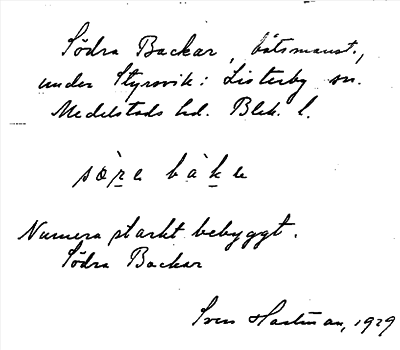 Södra Backar, båtsmanst.,
under Styrsvik i Listerby sn.
Medelstads hd. Blek. l.
sò̤ra bàka
Numera starkt bebyggt.
Södra Backar
Sven Hartman, 1929